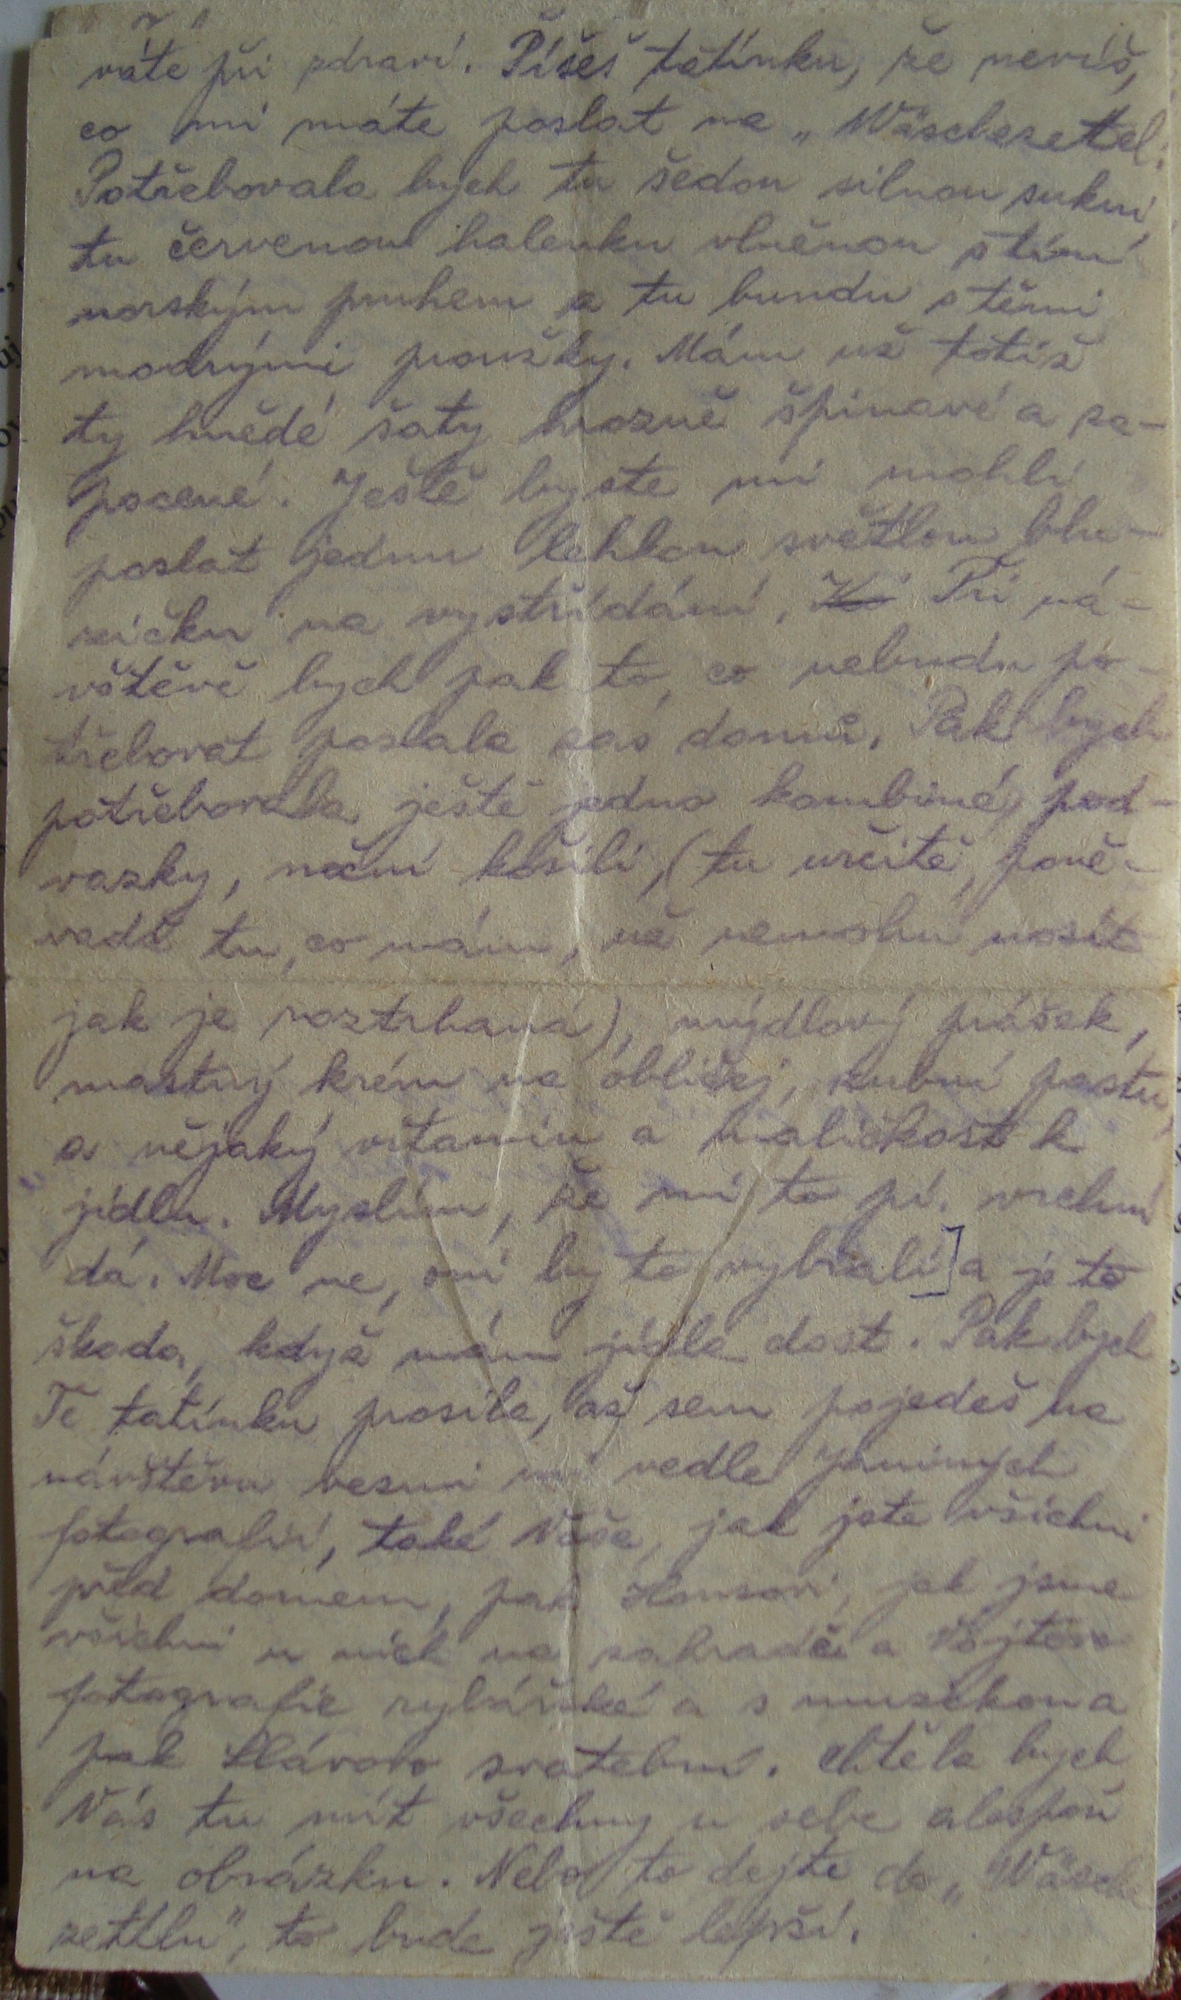 váte při zdraví. Píšeš tatínku, že nevíš,
co mi máte poslat na „Wäschezettel".
Potřebovala bych tu šedou silnou sukni,
tu červenou halenku vlněnou s tím
norským pruhem a tu bundu s těmi
modrými proužky. Mám už totiž
ty hnědé šaty hrozně špinavé a za-
pocené. Ještě byste mi mohli
poslat jednu lehkou světlou blu-
zičku na vystřídání. Při ná-
vštěvě bych pak to, co nebudu po-
třebovat poslala zas domů. Pak bych
potřebovala ještě jedno kombiné, pod-
vazky, noční košili, (tu určitě, poně-
vadž tu, co mám, už nemohu nosit
jak je roztrhaná), mýdlový prášek,
mastný krém na obličej, zubní pastu,
a nějaký vitamin a maličkost k
jídlu. Myslím, že mi to pí. vrchní
dá. Moc ne, oni by to vybrali] a je to
škoda, když mám jídla dost. Pak bych
Te tatínku prosila, až sem pojedeš na
návštěvu vezmi mi vedle Janiných
fotografií, také Vaše, jak jste všichni
před domem, pak Hansovi, jak jsme
všichni u nich na zahradě a Vojtovo
fotografie rybářské a s muzikou a
pak Slávovo svatební. Chtěla bych
Vás tu mít všechny u sebe alespoň
na obrázku. Nebo to dejte do „Wäsche
zettlu", to bude ještě lepší.